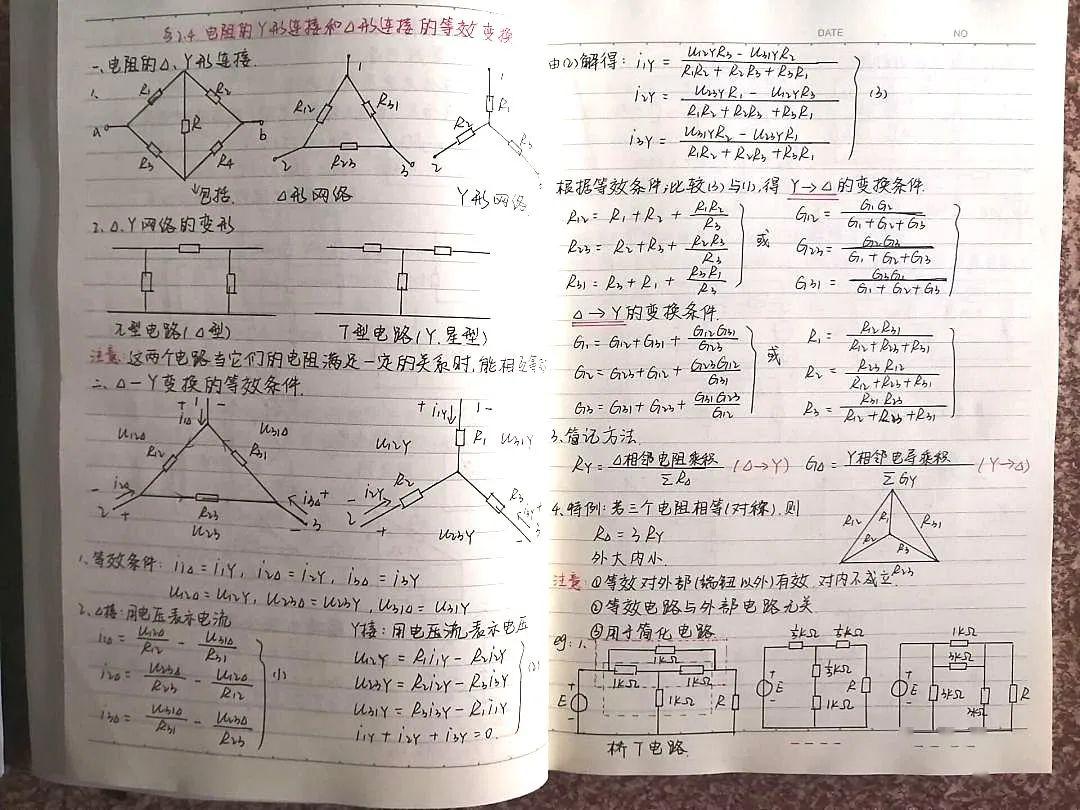 §2.4 电阻的Y形连接和△形连接的等效变换
一、电阻的△、Y形连接.
1.
R1
R2
a
R
b
R3
R4
包括.
1
R12
R31
2
R23
3
△形网络
1
R1
R2
R3
2
Y形网络
2.△、Y网络的变形
π型电路(△型)
T型电路(Y、星型)
注意:这两个电路当它们的电阻满足一定的关系时,能相互等
二、△—Y变换的等效条件.
+ 1 -
i1△
u12△
u31△
R12
R31
- i2△
i3△ +
2 +
R23
- 3
u23
+ i1Y 1 -
u12Y
R1
u31Y
- i2Y
R2
R3
2
+
u23Y
- 3
1、等效条件: i1△ = i1Y , i2△ = i2Y , i3△ = i3Y
u12△ = u12Y , u23△ = u23Y , u31△ = u31Y
2、△接:用电压表示电流
i1△ = u12△/R12 - u31△/R31
i2△ = u23△/R23 - u12△/R12
(1)
i3△ = u31△/R31 - u23△/R23
Y接:用电压流表示电压
u12Y = R1i1Y - R2i2Y
u23Y = R2i2Y - R3i3Y
u31Y = R3i3Y - R1i1Y
i1Y + i2Y + i3Y = 0.
DATE NO
由(2)解得: i1Y = (u12YR3 - u31YR2)/(R1R2 + R2R3 + R3R1)
i2Y = (u23YR1 - u12YR3)/(R1R2 + R2R3 + R3R1) (3)
i3Y = (u31YR2 - u23YR1)/(R1R2 + R2R3 + R3R1)
根据等效条件,比较(3)与(1),得 Y→△的变换条件.
R12 = R1 + R2 + R1R2/R3 G12 = G1G2/(G1 + G2 + G3)
R23 = R2 + R3 + R2R3/R3 或 G23 = G2G3/(G1 + G2 + G3)
R31 = R3 + R1 + R3R1/R3 G31 = G3G1/(G1 + G2 + G3)
△→Y的变换条件.
G1 = G12 + G31 + G12G31/G23 R1 = R12R31/(R12 + R23 + R31)
G2 = G23 + G12 + G23G12/G31 或 R2 = R23R12/(R12 + R23 + R31)
G3 = G31 + G23 + G31G23/G12 R3 = R31R23/(R12 + R23 + R31)
3、简记方法.
RY = △相邻电阻乘积/ΣR△ (△→Y) G△ = Y相邻电导乘积/ΣGY (Y→△)
4、特例:若三个电阻相等(对称),则
R△ = 3RY
外大内小.
R12
R1
R31
R2
R3
R23
注意:①等效对外部(端钮以外)有效,对内不成立
②等效电路与外部电路无关
③用于简化电路
eg:1、
1KΩ
1KΩ
1KΩ
+
E
-
1KΩ
R
桥T电路
⅓KΩ ⅓KΩ
+
E
-
⅓KΩ
1KΩ
R
1KΩ
3KΩ
+
E
-
3KΩ
3KΩ
R